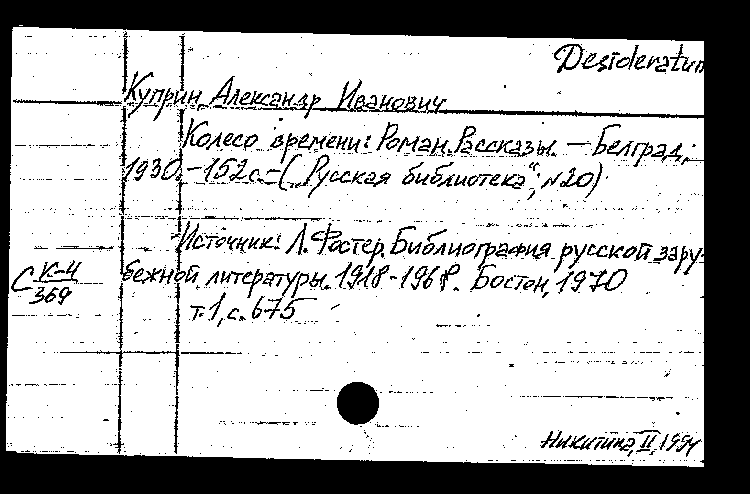 Desideratum
Куприн, Александр Иванович
Колесо времени: Роман. Рассказы. — Белград,;
1930. - 152 с. - („Русская библиотека“; N 20)
Источник: Л. Фостер. Библиография русской зару-
бежной литературы. 1918-1968. Бостон, 1970
т. 1, с. 675
С К-4
369
Никитина, II, 1994